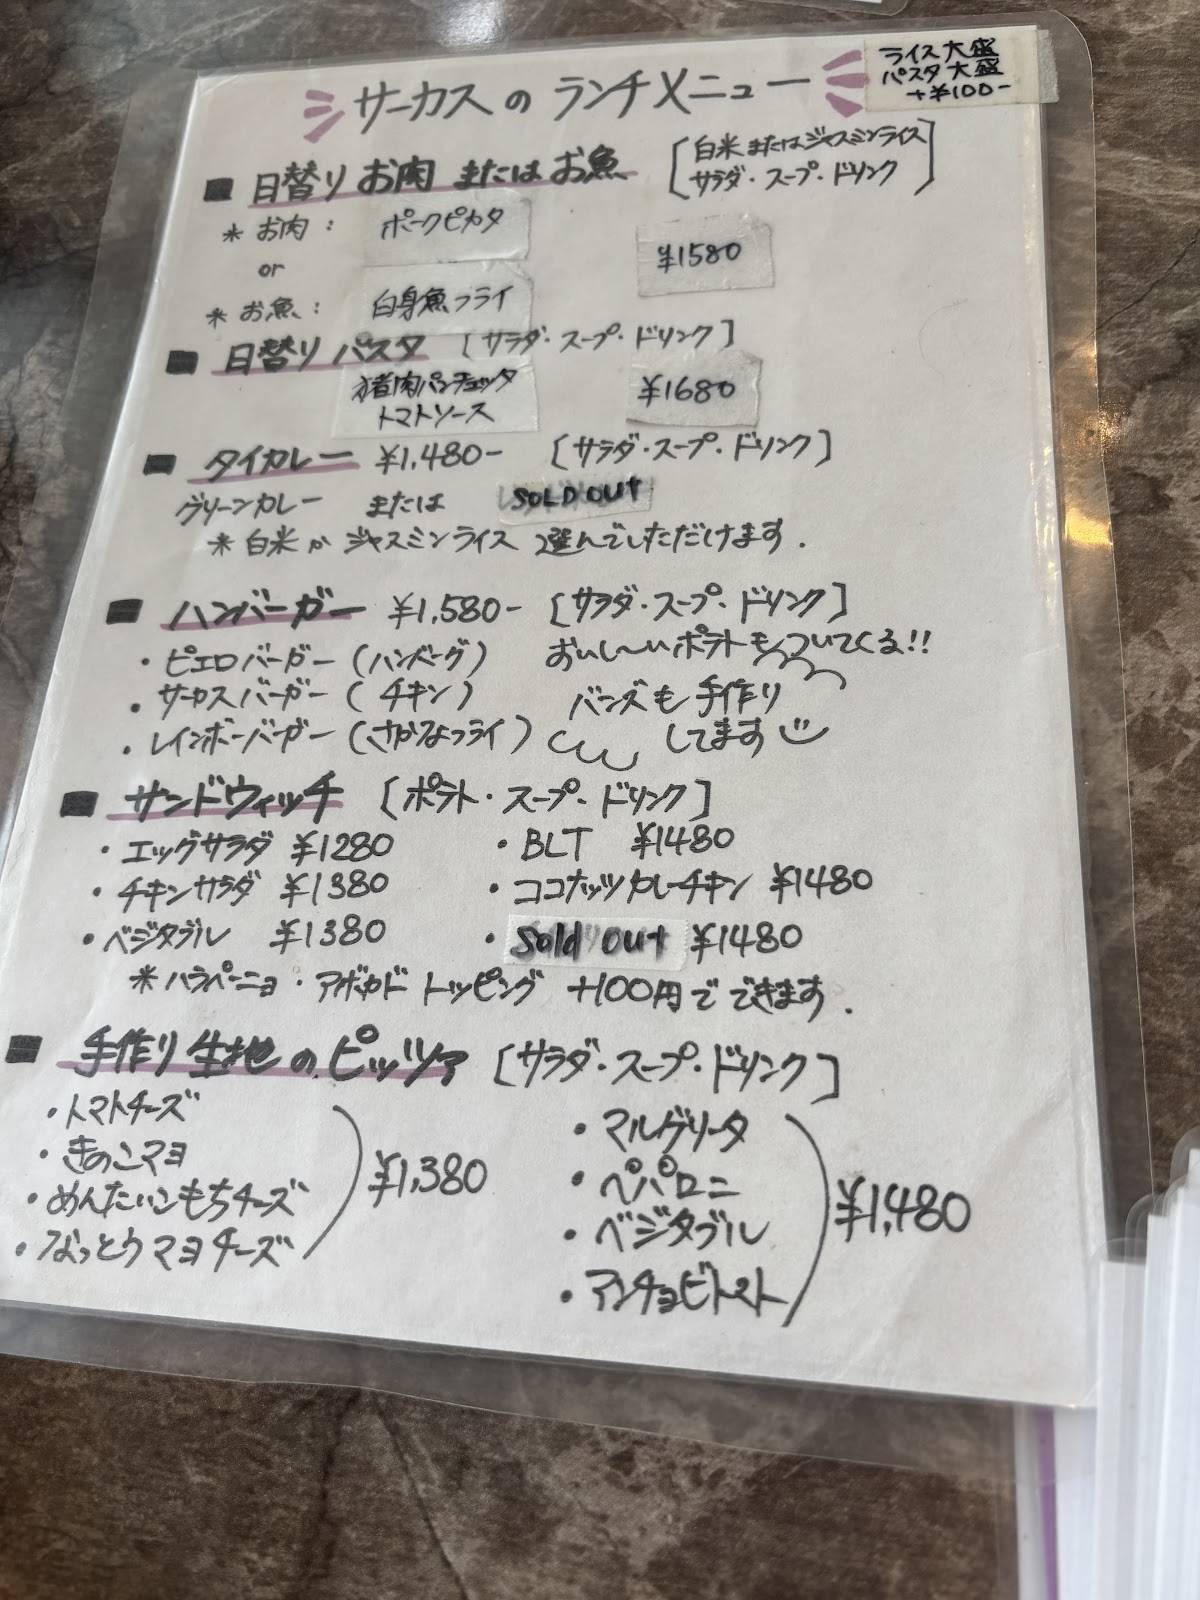 ライス大盛
パスタ大盛
+¥100-
サーカスの ランチメニュー
■ 日替り お肉 または お魚
[白米またはジャスミンライス
サラダ・スープ・ドリンク]
* お肉: ポークピカタ
or
¥1580
* お魚: 白身魚フライ
■ 日替り パスタ [サラダ・スープ・ドリンク]
猪肉パンチェッタ
トマトソース
¥1680
■ タイカレー ¥1,480- [サラダ・スープ・ドリンク]
グリーンカレー または SOLD OUT
* 白米か ジャスミンライス 選んでいただけます.
■ ハンバーガー ¥1,580- [サラダ・スープ・ドリンク]
・ピエロバーガー (ハンバーグ) おいし〜いポテトもついてくる!!
・サーカスバーガー (チキン) バンズも手作り
・レインボーバーガー (さかなフライ) してます
■ サンドウィッチ [ポテト・スープ・ドリンク]
・エッグサラダ ¥1280 ・BLT ¥1480
・チキンサラダ ¥1380 ・ココナッツカレーチキン ¥1480
・ベジタブル ¥1380 ・Sold out ¥1480
* ハラペーニョ・アボカド トッピング +100円で できます.
■ 手作り生地の ピッツァ [サラダ・スープ・ドリンク]
・トマトチーズ
・きのこマヨ
・めんたいこもちチーズ
・なっとうマヨチーズ
¥1,380
・マルゲリータ
・ペパロニ
・ベジタブル
・アンチョビトマト
¥1,480